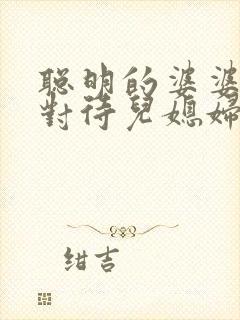 聪明的婆婆
對待兒媳婦
绀吉